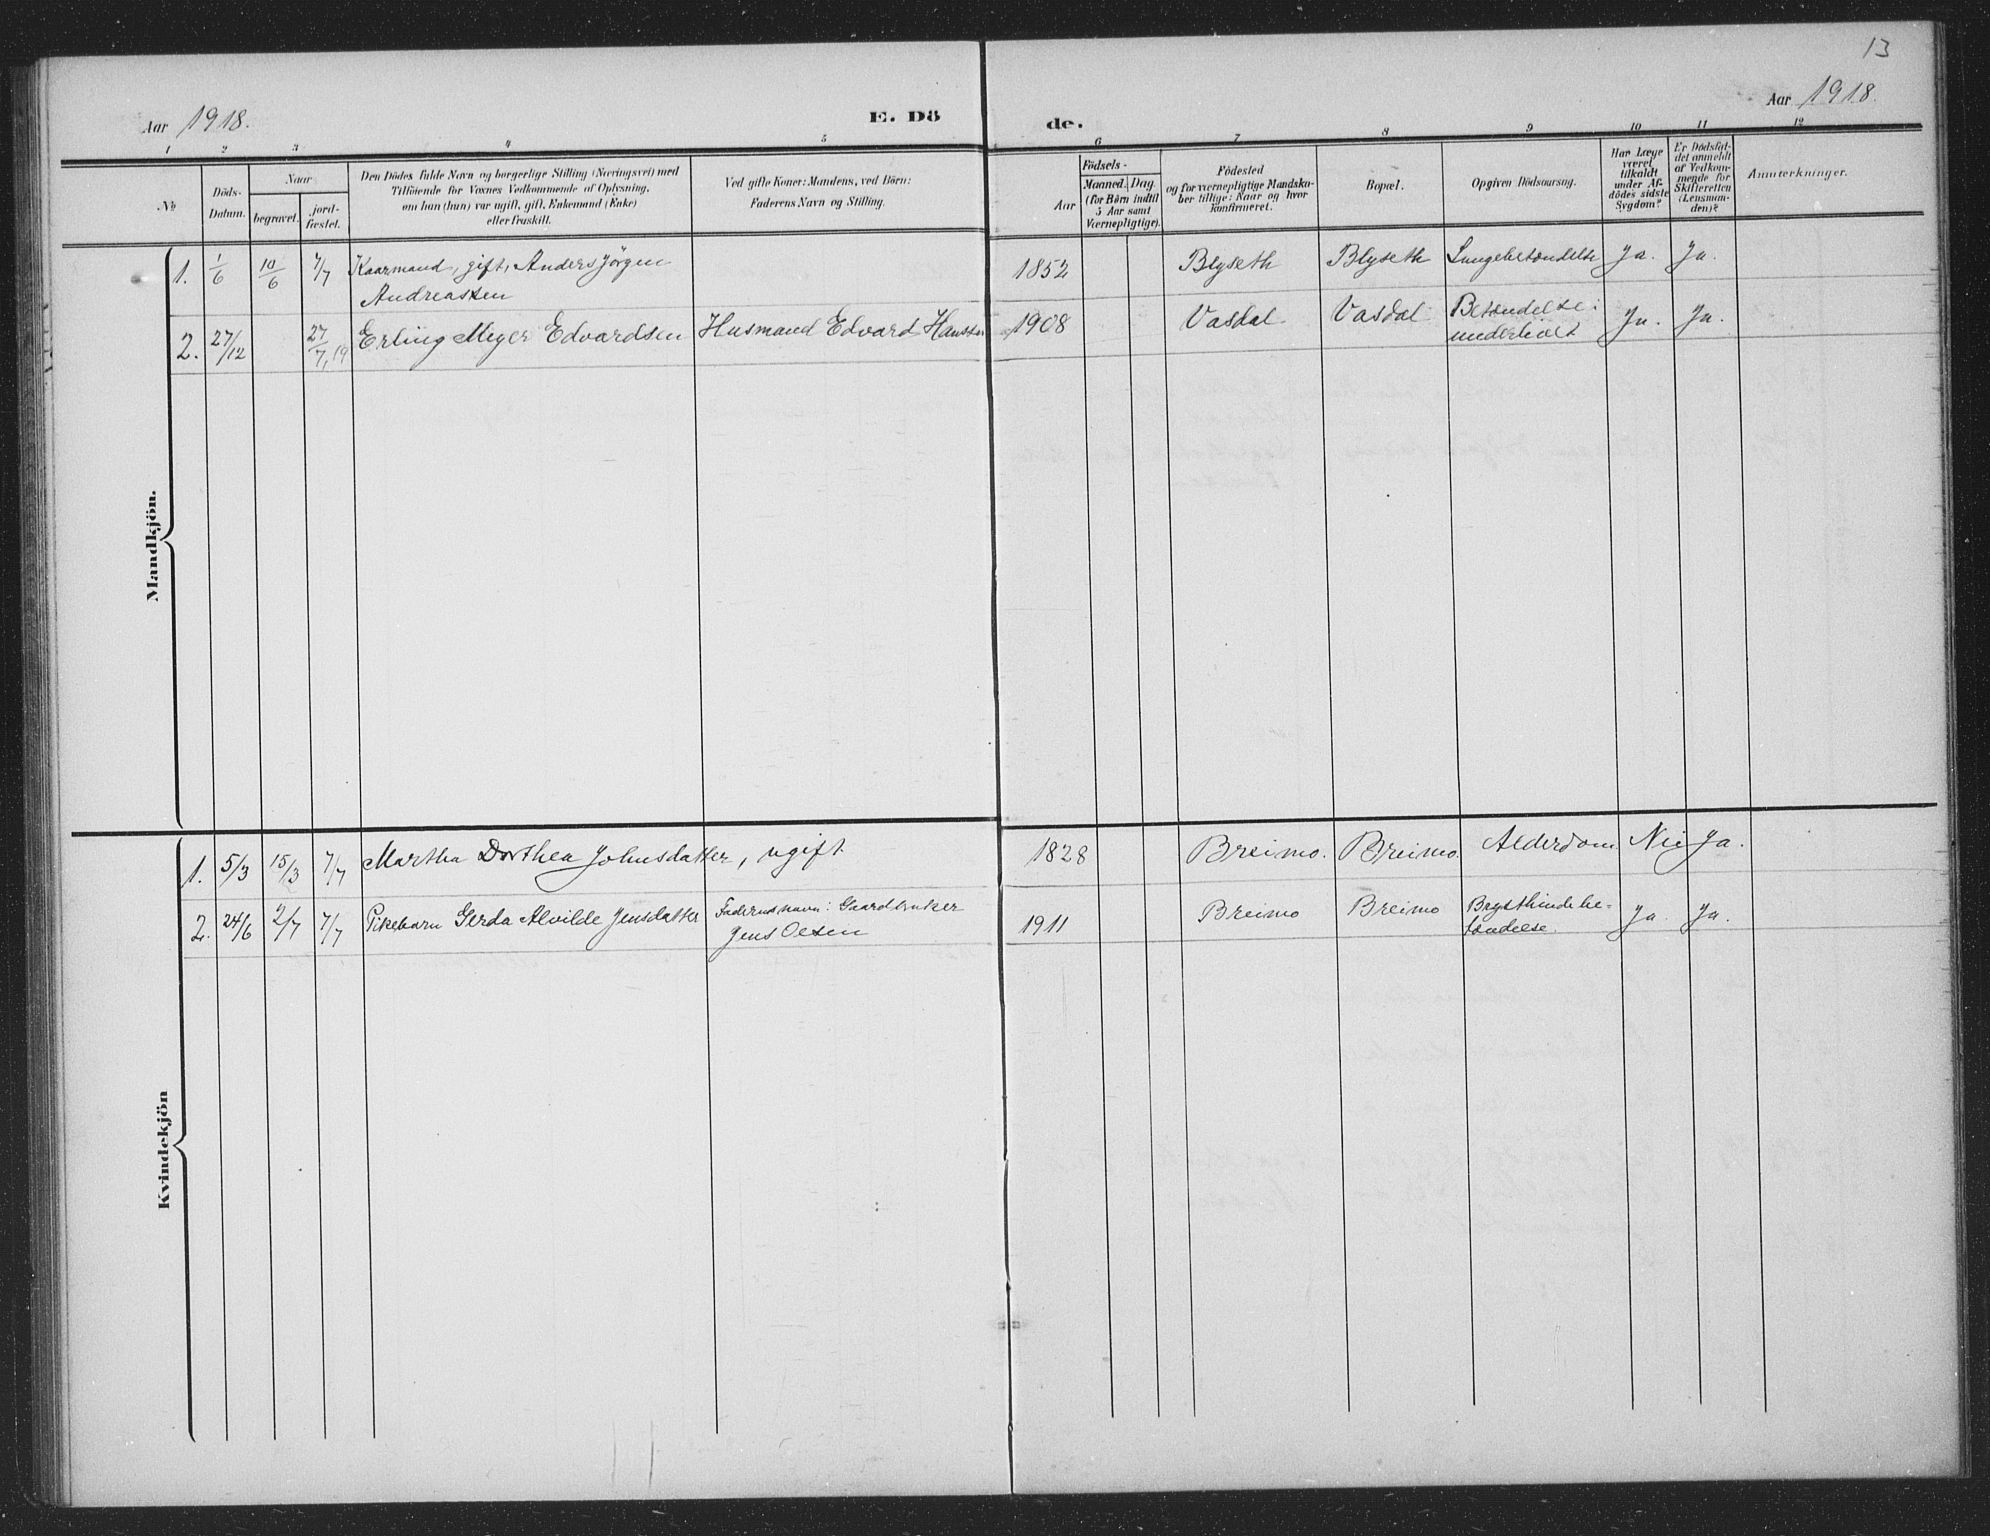 13
Aar 1918.
E. Dö
de.
Aar 1918.
1 2 3 4 5 6 7 8 9 10 11 12
№
Döds-
Datum.
Naar
begravet.
jord-
fæstet.
Den Dödes fulde Navn og borgerlige Stilling (Næringsvei) med
Tilföiende for Voxnes Vedkommende af Oplysning,
om han (hun) var ugift, gift, Enkemand (Enke)
eller fraskilt.
Ved gifte Koner: Mandens, ved Börn:
Faderens Navn og Stilling.
Födsels-
Aar
Maaned.
Dag
(for Börn indtil
5 Aar samt
Værnepligtige).
Födested
og for værnepligtige Mandska-
ber tillige: Naar og hvor
konfirmeret.
Bopæl.
Opgiven Dödsaarsag.
Har Læge
været
tilkaldt
under Af-
dödes sidste
Sygdom?
Er Dödsfal-
det anmeldt
af Vedkom-
mende for
Skifteretten
(Lensman-
den)?
Anmærkninger.
Mandkjön.
1. 1/6 10/6 7/7 Kaarmand, gift, Anders Jörgen
Andreassen
1852 Blyseth Blyseth Lungebetændelse Ja. Ja.
2. 27/12 27/7,19 Erling Meyer Edvardsen Husmand Edvard Hansen 1908 Vasdal Vasdal Betændelse i
underlivet Ja. Ja.
Kvindekjön
1. 5/3 15/3 7/7 Martha Dorthea Johnsdatter, ugift. 1828 Breimo. Breimo. Alderdom Nei Ja.
2. 24/6 2/7 7/7 Pikebarn Gerda Alvilde Jensdatter Faderns navn: Gaardbruker
Jens Olsen
1911 Breimo Breimo Brysthindebe-
tændelse. Ja. Ja.